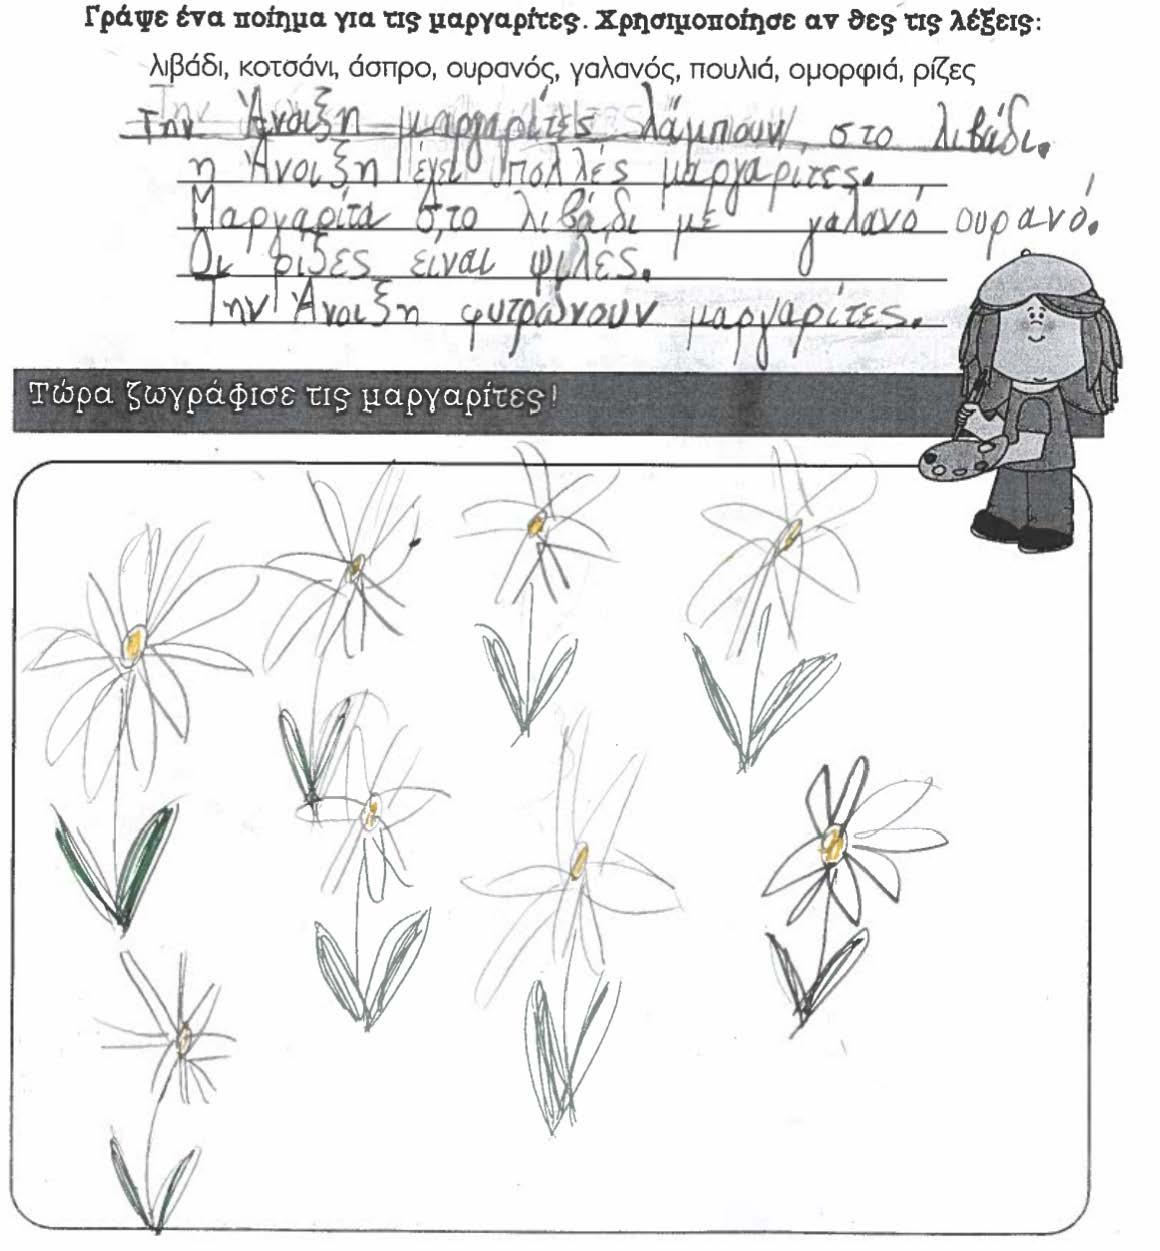 Γράψε ένα ποίημα για τις μαργαρίτες. Χρησιμοποίησε αν θες τις λέξεις:
λιβάδι, κοτσάνι, άσπρο, ουρανός, γαλανός, πουλιά, ομορφιά, ρίζες
Την Άνοιξη μαργαρίτες λάμπουν στο λιβάδι.
η Άνοιξη έχει πολλές μαργαρίτες.
Μαργαρίτα στο λιβάδι με γαλανό ουρανό.
Οι ρίζες είναι ψιλές.
Την Άνοιξη φυτρώνουν μαργαρίτες.
Τώρα ζωγράφισε τις μαργαρίτες!